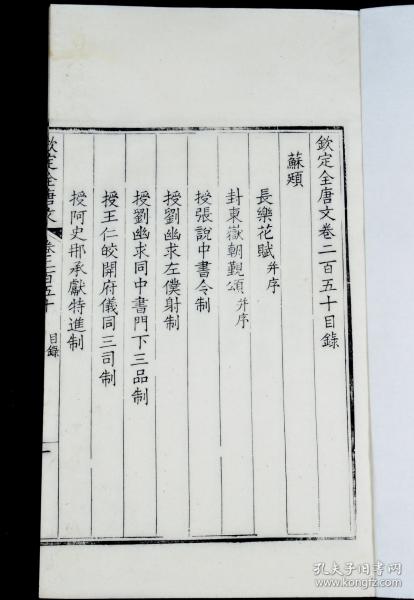 欽定全唐文卷二百五十目錄
蘇頲
長樂花賦并序
封東嶽朝覲頌并序
授張說中書令制
授劉幽求左僕射制
授劉幽求同中書門下三品制
授王仁皎開府儀同三司制
授阿史那承獻特進制
欽定全唐文 卷二百五十 目錄 一
孔夫子旧书网
www.kongfz.com